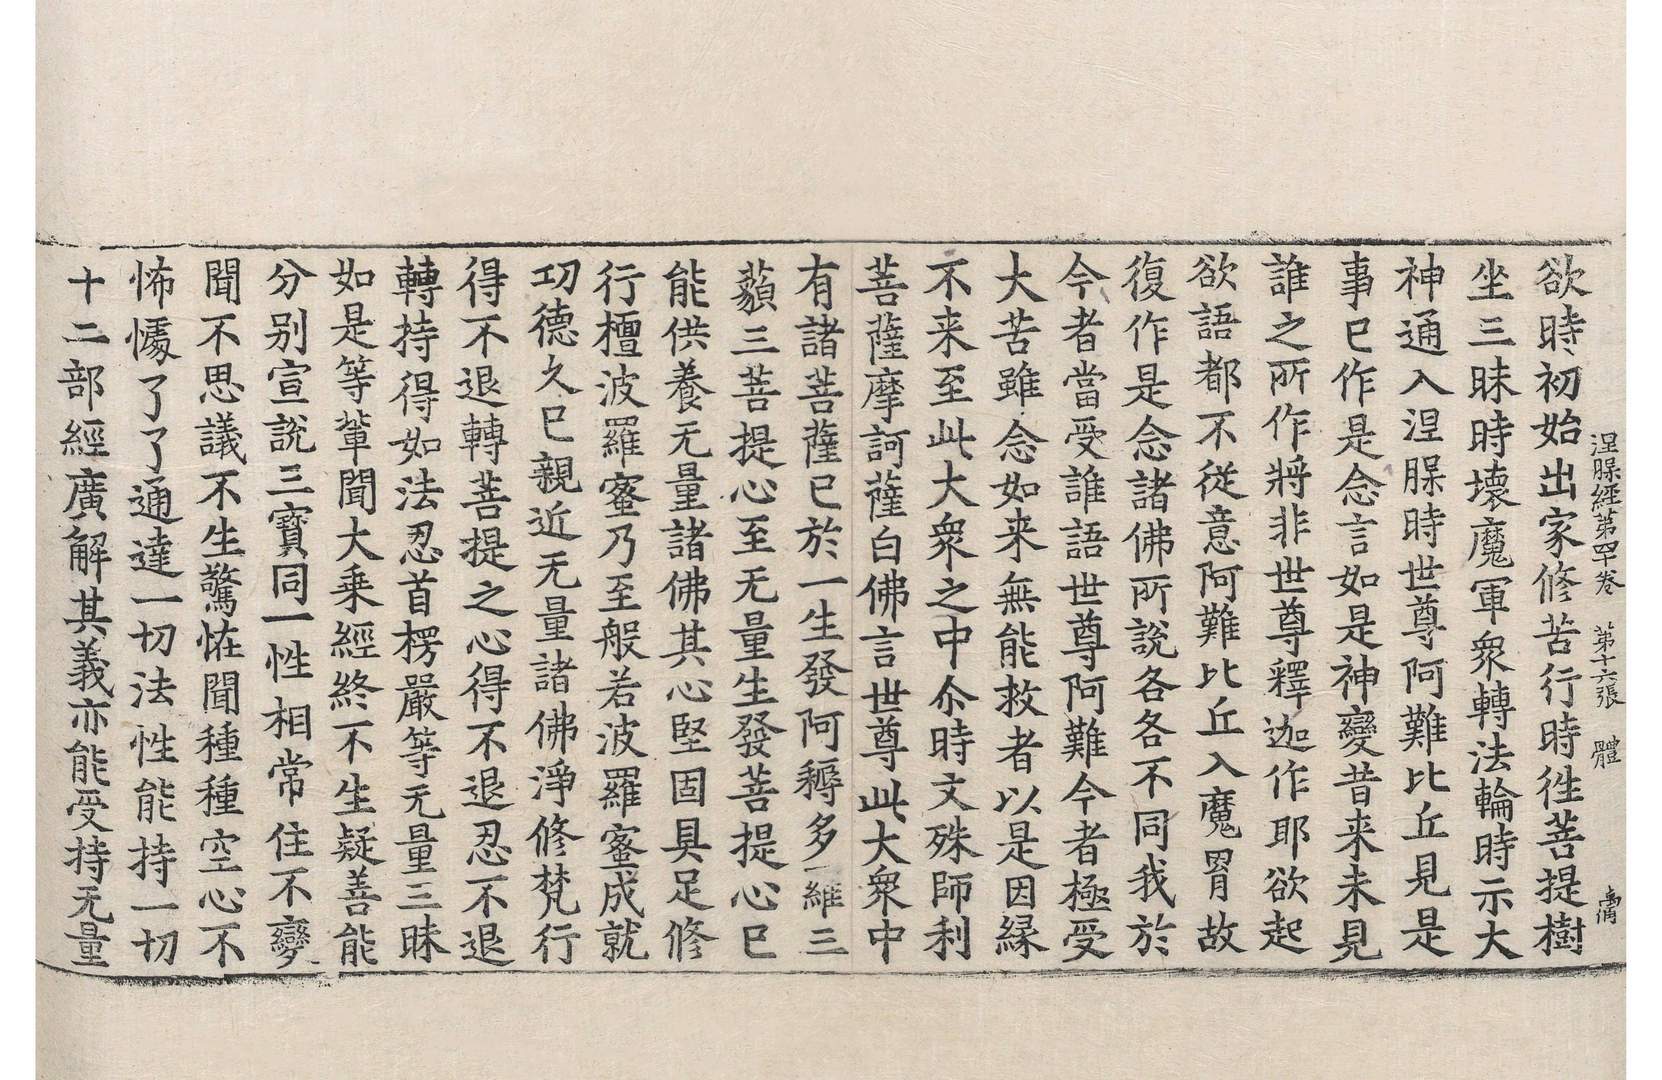 涅槃經第四十卷　第十六張　體
欲時初始出家修苦行時徃菩提樹
坐三昧時壞魔軍衆轉法輪時示大
神通入涅槃時世尊阿難比丘見是
事已作是念言如是神變昔来未見
誰之所作將非世尊釋迦作耶欲起
欲語都不從意阿難比丘入魔罥故
復作是念諸佛所說各各不同我於
今者當受誰語世尊阿難今者極受
大苦雖念如来無能救者以是因縁
不来至此大衆之中尒時文殊師利
菩薩摩訶薩白佛言世尊此大衆中
有諸菩薩已於一生發阿耨多羅三
藐三菩提心至无量生發菩提心已
能供養无量諸佛其心堅固具足修
行檀波羅蜜乃至般若波羅蜜成就
功德久已親近无量諸佛淨修梵行
得不退轉菩提之心得不退忍不退
轉持得如法忍首楞嚴等无量三昧
如是等輩聞大乗經終不生疑善能
分别宣說三寶同一性相常住不變
聞不思議不生驚恠聞種種空心不
怖懅了了通達一切法性能持一切
十二部經廣解其義亦能受持无量